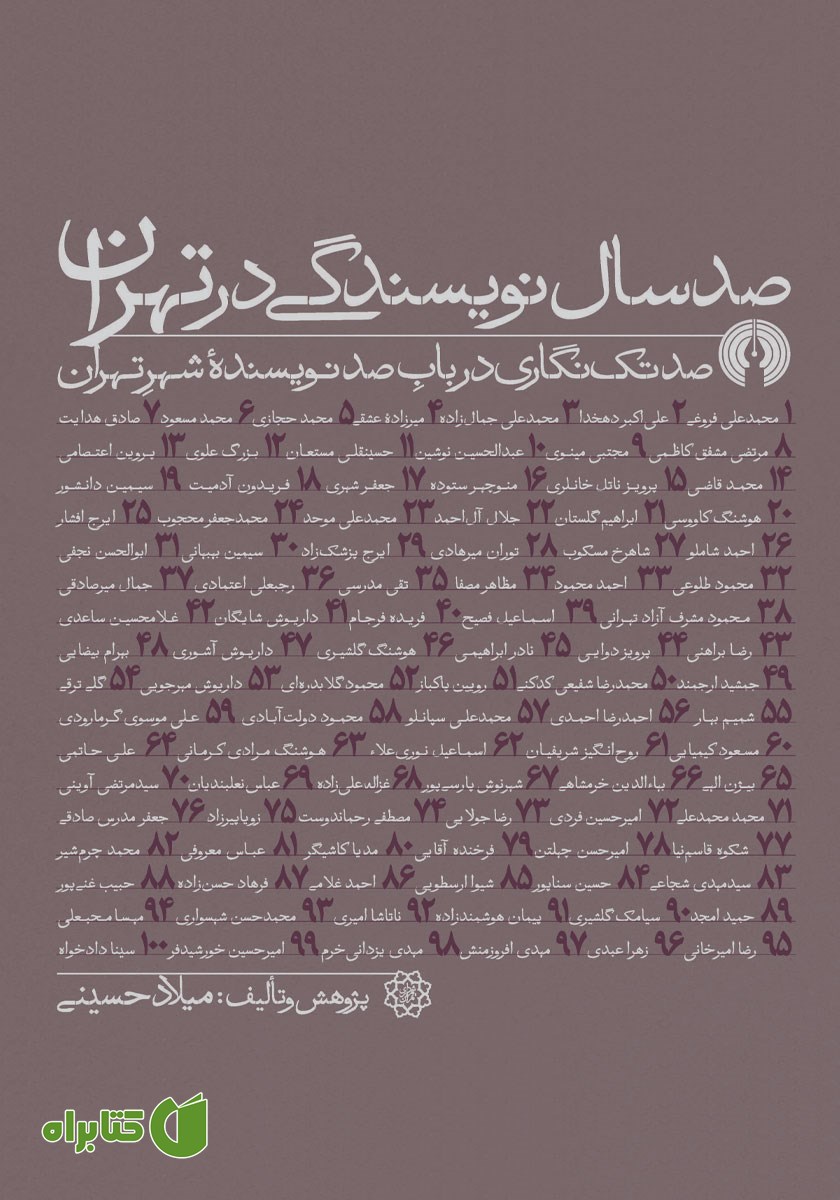 صد سال نویسندگی در تهران
صد تک‌نگاری در بابِ صد نویسندهٔ شهرِ تهران
۱ محمدعلی فروغی ۲ علی‌اکبر دهخدا ۳ محمدعلی جمال‌زاده ۴ میرزادهٔ عشقی ۵ محمد حجازی ۶ محمد مسعود ۷ صادق هدایت
۸ مرتضی مشفق کاظمی ۹ مجتبی مینوی ۱۰ عبدالحسین نوشین ۱۱ حسینقلی مستعان ۱۲ بزرگ علوی ۱۳ پروین اعتصامی
۱۴ محمد قاضی ۱۵ پرویز ناتل خانلری ۱۶ منوچهر ستوده ۱۷ جعفر شهری ۱۸ فریدون آدمیت ۱۹ سیمین دانشور
۲۰ هوشنگ کاووسی ۲۱ ابراهیم گلستان ۲۲ جلال آل‌احمد ۲۳ محمدعلی موحد ۲۴ محمدجعفر محجوب ۲۵ ایرج افشار
۲۶ احمد شاملو ۲۷ شاهرخ مسکوب ۲۸ توران میرهادی ۲۹ ایرج پزشک‌زاد ۳۰ سیمین بهبهانی ۳۱ ابوالحسن نجفی
۳۲ محمود طلوعی ۳۳ احمد محمود ۳۴ مظاهر مصفا ۳۵ تقی مدرسی ۳۶ رجبعلی اعتمادی ۳۷ جمال میرصادقی
۳۸ محمود مشرف آزاد تهرانی ۳۹ اسماعیل فصیح ۴۰ فریده فرجام ۴۱ داریوش شایگان ۴۲ غلامحسین ساعدی
۴۳ رضا براهنی ۴۴ پرویز دوایی ۴۵ نادر ابراهیمی ۴۶ هوشنگ گلشیری ۴۷ داریوش آشوری ۴۸ بهرام بیضایی
۴۹ جمشید ارجمند ۵۰ محمدرضا شفیعی کدکنی ۵۱ رویین پاکباز ۵۲ محمود گلابدره‌ای ۵۳ داریوش مهرجویی ۵۴ گلی ترقی
۵۵ شمیم بهار ۵۶ احمدرضا احمدی ۵۷ محمدعلی سپانلو ۵۸ محمود دولت‌آبادی ۵۹ علی موسوی گرمارودی
۶۰ مسعود کیمیایی ۶۱ روح‌انگیز شریفیان ۶۲ اسماعیل نوری‌علاء ۶۳ هوشنگ مرادی کرمانی ۶۴ علی حاتمی
۶۵ بیژن الهی ۶۶ بهاءالدین خرمشاهی ۶۷ شهرنوش پارسی‌پور ۶۸ غزاله علی‌زاده ۶۹ عباس نعلبندیان ۷۰ سیدمرتضی آوینی
۷۱ محمد محمدعلی ۷۲ امیرحسین فردی ۷۳ رضا جولایی ۷۴ مصطفی رحماندوست ۷۵ زویا پیرزاد ۷۶ جعفر مدرس صادقی
۷۷ شکوه قاسم‌نیا ۷۸ امیرحسن چهلتن ۷۹ فرخنده آقایی ۸۰ مدیا کاشیگر ۸۱ عباس معروفی ۸۲ محمد چرم‌شیر
۸۳ سیدمهدی شجاعی ۸۴ حسین سناپور ۸۵ شیوا ارسطویی ۸۶ احمد غلامی ۸۷ فرهاد حسن‌زاده ۸۸ حبیب غنی‌پور
۸۹ حمید امجد ۹۰ سیامک گلشیری ۹۱ پیمان هوشمندزاده ۹۲ ناتاشا امیری ۹۳ محمدحسن شهسواری ۹۴ مهسا محبعلی
۹۵ رضا امیرخانی ۹۶ زهرا عبدی ۹۷ مهدی افروزمنش ۹۸ مهدی یزدانی خرم ۹۹ امیرحسین خورشیدفر ۱۰۰ سینا دادخواه
پژوهش و تألیف: میلاد حسینی
کتابراه